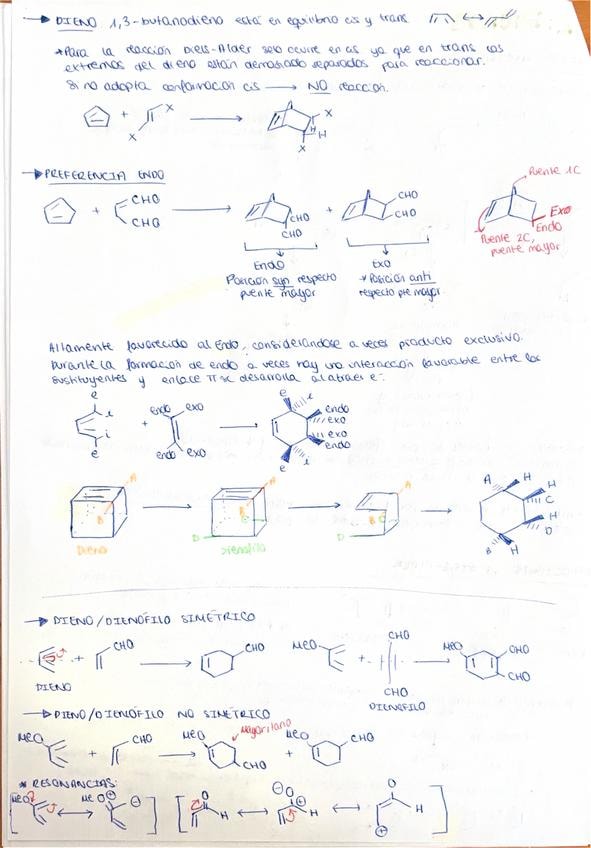 → DIENO 1,3-butanodieno está en equilibrio cis y trans
*Para la reacción Diels-Alder solo ocurre en cis ya que en trans los
extremos del dieno están demasiado separados para reaccionar.
Si no adopta conformación cis → NO reacción.
+ X X → X H H X
→ PREFERENCIA ENDO
+ CHO CHO → CHO CHO + CHO CHO
Puente 1C
Exo
Endo
Puente 2C,
puente mayor
Endo
Posición syn respecto
puente mayor
Exo
*Posición anti
respecto pte mayor
Altamente favorecido al Endo, considerándose a veces producto exclusivo.
Durante la formación de endo a veces hay una interacción favorable entre los
sustituyentes y enlace π se desarrolla al atraer e-
e i i e + endo exo endo exo → e i endo exo exo endo e i
A B → A B C D → A B C D → A H H C H D B H
Dieno
Dienófilo
→ DIENO/DIENÓFILO SIMÉTRICO
+ CHO → CHO
DIENO
MeO + CHO CHO → MeO CHO CHO
DIENOFILO
→ DIENO/DIENÓFILO NO SIMÉTRICO
MeO + CHO → MeO CHO + MeO CHO
Mayoritario
* RESONANCIAS:
[MeO ↔ MeO ⊕ ⊖] [O H ↔ ⊖ O ⊕ H ↔ O H ⊕]